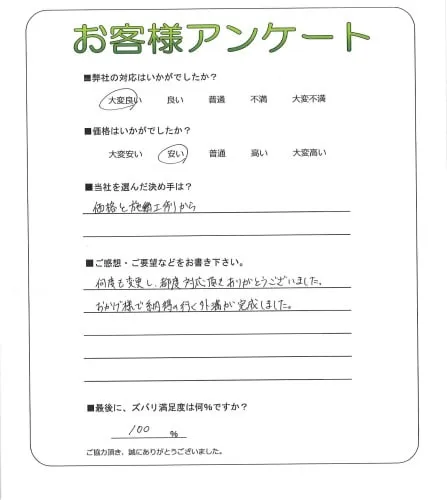 お客様アンケート
■弊社の対応はいかがでしたか?
大変良い 良い 普通 不満 大変不満
■価格はいかがでしたか?
大変安い 安い 普通 高い 大変高い
■当社を選んだ決め手は?
価格と施工例から
■ご感想・ご要望などをお書き下さい。
何度も変更し、都度対応頂きありがとうございました。
おかげ様で納得の行く外溝が完成しました。
■最後に、ズバリ満足度は何%ですか?
100 %
ご協力頂き、誠にありがとうございました。